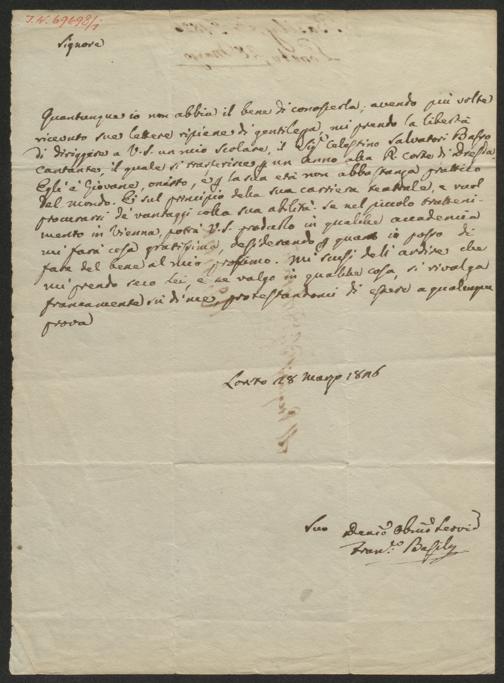 I.N. 69698/1
Signore
Quantunque io non abbia il bene di conoscerla, avendo più volte
ricevuto sue lettere ripiene di gentilezza, mi prendo la libertà
di diriggere a V.S. un mio Scolare, il Sigr Celestino Salvatori Basso
Cantante, il quale si trasferisce p un anno alla R. Corte di Dresda.
Egli è Giovane, onesto, e p la sua età non abbastanza prattico
del mondo. È sul principio della sua carriera teatrale, e vuol
procurarsi de' vantaggi colla sua abilità. Se nel piccolo tratteni-
mento in Vienna, potrà V.S. produrlo in qualche accademia
mi farà cosa gratissima, desiderando p quanto io posso di
fare del bene al mio prossimo. Mi scusi dell ardire che
mi prendo seco lei, e se valgo in qualche cosa, si rivalga
francamente su di me, protestandomi di essere a qualunque
prova
Loreto 28 Marzo 1826
Suo Devmo Obmo Servid
Franco Basily